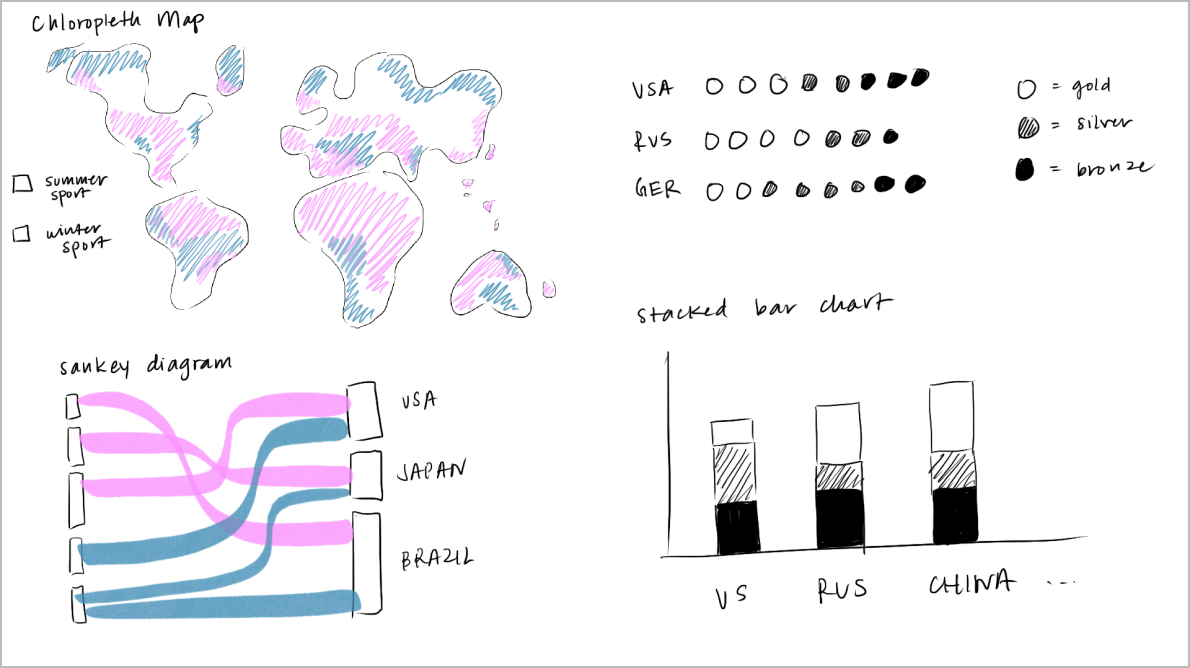 Chloropleth Map
summer
sport
winter
sport
USA
RUS
GER
= gold
= silver
= bronze
sankey diagram
USA
JAPAN
BRAZIL
stacked bar chart
US
RUS
CHINA ...